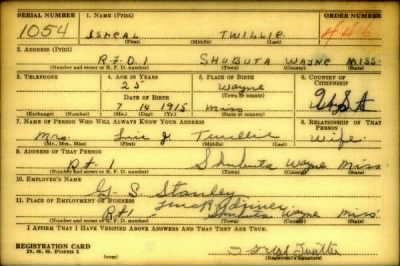 SERIAL NUMBER 1. NAME (Print) ORDER NUMBER
1054 ISREAL TWILLIE 446
(First) (Middle) (Last)
2. ADDRESS (Print)
R.F.D.1 SHUBUTA WAYNE MISS.
(Number and street or R. F. D. number) (Town) (County) (State)
3. TELEPHONE 4. AGE IN YEARS 5. PLACE OF BIRTH 6. COUNTRY OF CITIZENSHIP
25 Wayne
DATE OF BIRTH (Town or county) U.S.A
7 14 1915 Miss
(Exchange) (Number) (Mo.) (Day) (Yr.) (State or country)
7. NAME OF PERSON WHO WILL ALWAYS KNOW YOUR ADDRESS 8. RELATIONSHIP OF THAT PERSON
Mrs. J Twillie Wife
(Mr., Mrs., Miss) (First) (Middle) (Last)
9. ADDRESS OF THAT PERSON
Rt. 1 Shubuta Wayne Miss.
(Number and street or R. F. D. number) (Town) (County) (State)
10. EMPLOYER'S NAME
G. S. Stanley
11. PLACE OF EMPLOYMENT OR BUSINESS
Rt 1 Shubuta Wayne Miss
(Number and street or R. F. D. number) (Town) (County) (State)
I AFFIRM THAT I HAVE VERIFIED ABOVE ANSWERS AND THAT THEY ARE TRUE.
REGISTRATION CARD
D. S. S. Form 1 (over) (Registrant's signature)